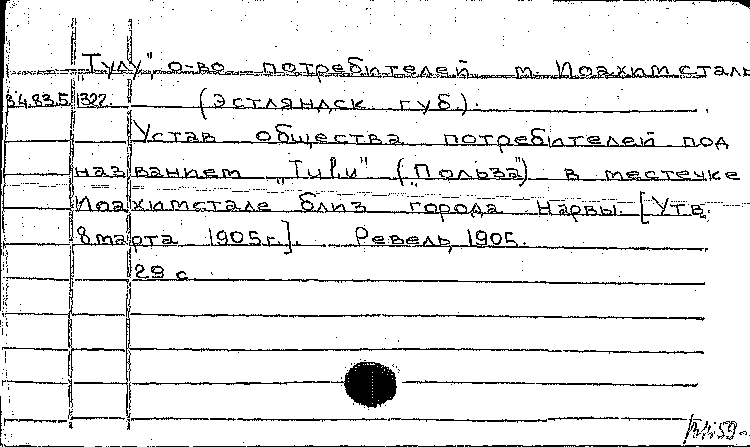 „Тулу", о-во потребителей м. Иоахимсталь
34.83.5. 1322. (Эстляндск. губ.).
Устав общества потребителей под
названием „Тулу" („Польза") в местечке
Иоахимстале близ города Нарвы. [Утв.
8 марта 1905 г.]. Ревель, 1905.
29 с.